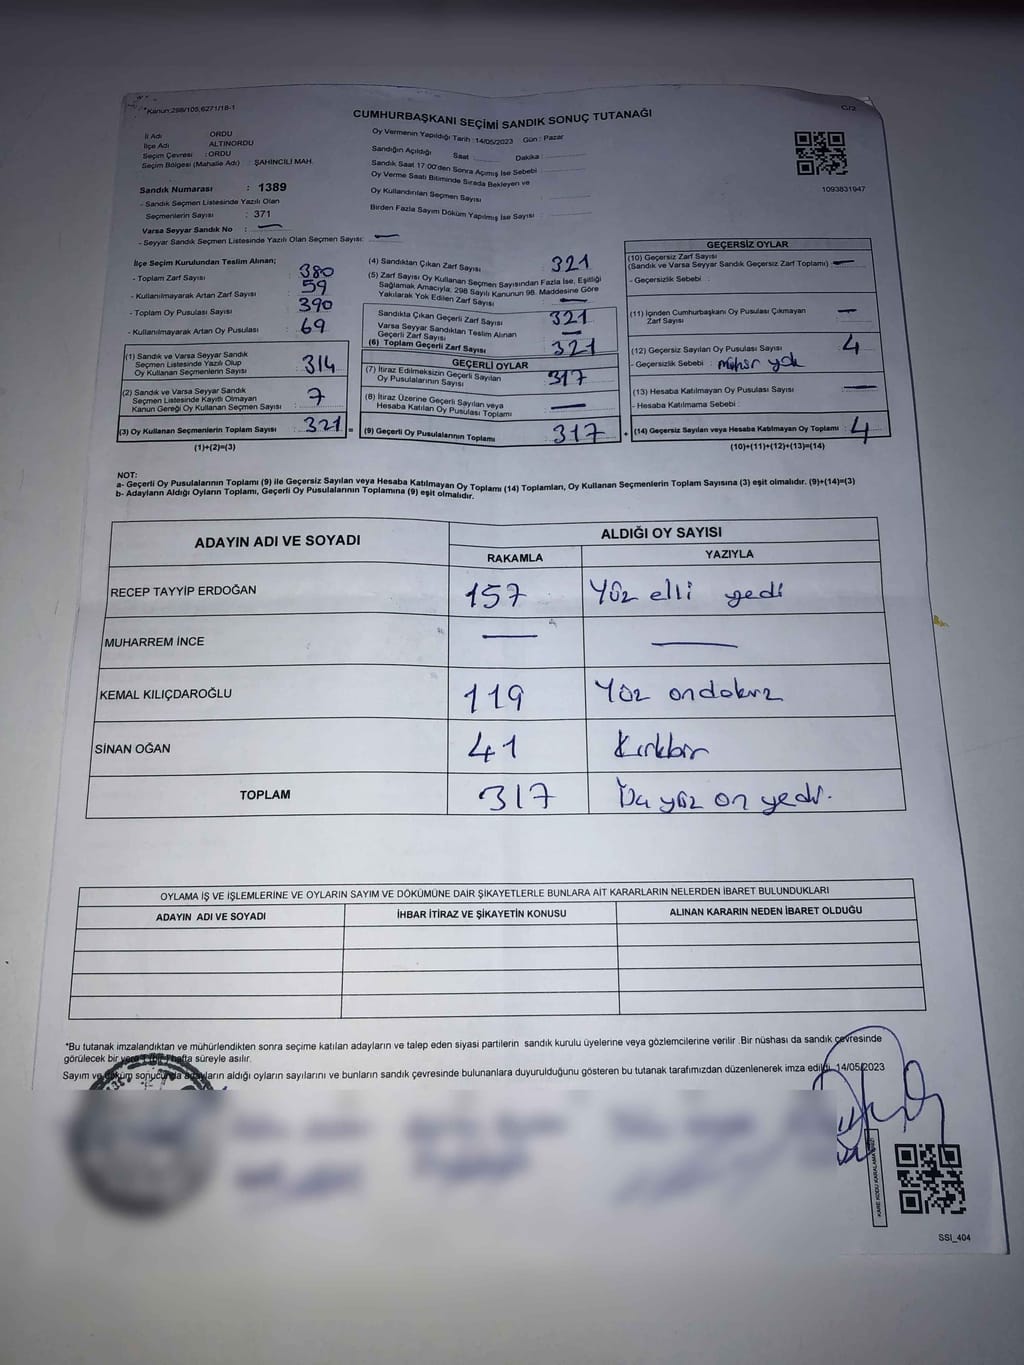 *Kanun:298/105,6271/18-1
C/2
CUMHURBAŞKANI SEÇİMİ SANDIK SONUÇ TUTANAĞI
İl Adı ORDU
İlçe Adı ALTINORDU
Seçim Çevresi : ORDU
Seçim Bölgesi (Mahalle Adı) : ŞAHİNCİLİ MAH.
Sandık Numarası : 1389
- Sandık Seçmen Listesinde Yazılı Olan
Seçmenlerin Sayısı : 371
Varsa Seyyar Sandık No : —
- Seyyar Sandık Seçmen Listesinde Yazılı Olan Seçmen Sayısı: —
Oy Vermenin Yapıldığı Tarih :14/05/2023 Gün : Pazar
Sandığın Açıldığı Saat Dakika :
Sandık Saat 17:00'den Sonra Açımış İse Sebebi
Oy Verme Saati Bitiminde Sırada Bekleyen ve
Oy Kullandırılan Seçmen Sayısı :
Birden Fazla Sayım Döküm Yapılmış İse Sayısı :
1093831947
İlçe Seçim Kurulundan Teslim Alınan;
- Toplam Zarf Sayısı : 380
- Kullanılmayarak Artan Zarf Sayısı : 59
- Toplam Oy Pusulası Sayısı : 390
- Kullanılmayarak Artan Oy Pusulası : 69
(1) Sandık ve Varsa Seyyar Sandık
Seçmen Listesinde Yazılı Olup
Oy Kullanan Seçmenlerin Sayısı : 314
(2) Sandık ve Varsa Seyyar Sandık
Seçmen Listesinde Kayıtlı Olmayan
Kanun Gereği Oy Kullanan Seçmen Sayısı : 7
(3) Oy Kullanan Seçmenlerin Toplam Sayısı : 321 =
(1)+(2)=(3)
(4) Sandıktan Çıkan Zarf Sayısı : 321
(5) Zarf Sayısı Oy Kullanan Seçmen Sayısından Fazla İse, Eşitliği
Sağlamak Amacıyla, 298 Sayılı Kanunun 98. Maddesine Göre
Yakılarak Yok Edilen Zarf Sayısı : —
Sandıkta Çıkan Geçerli Zarf Sayısı : 321
Varsa Seyyar Sandıktan Teslim Alınan
Geçerli Zarf Sayısı : —
(6) Toplam Geçerli Zarf Sayısı : 321
GEÇERLİ OYLAR
(7) İtiraz Edilmeksizin Geçerli Sayılan
Oy Pusulalarının Sayısı : 317
(8) İtiraz Üzerine Geçerli Sayılan veya
Hesaba Katılan Oy Pusulası Toplamı : —
(9) Geçerli Oy Pusulalarının Toplamı : 317 +
GEÇERSİZ OYLAR
(10) Geçersiz Zarf Sayısı
(Sandık ve Varsa Seyyar Sandık Geçersiz Zarf Toplamı) : —
- Geçersizlik Sebebi :
(11) İçinden Cumhurbaşkanı Oy Pusulası Çıkmayan
Zarf Sayısı : —
(12) Geçersiz Sayılan Oy Pusulası Sayısı : 4
- Geçersizlik Sebebi : mühür yok
(13) Hesaba Katılmayan Oy Pusulası Sayısı : —
- Hesaba Katılmama Sebebi :
(14) Geçersiz Sayılan veya Hesaba Katılmayan Oy Toplamı : 4
(10)+(11)+(12)+(13)=(14)
NOT:
a- Geçerli Oy Pusulalarının Toplamı (9) ile Geçersiz Sayılan veya Hesaba Katılmayan Oy Toplamı (14) Toplamları, Oy Kullanan Seçmenlerin Toplam Sayısına (3) eşit olmalıdır. (9)+(14)=(3)
b- Adayların Aldığı Oyların Toplamı, Geçerli Oy Pusulalarının Toplamına (9) eşit olmalıdır.
ADAYIN ADI VE SOYADI ALDIĞI OY SAYISI
RAKAMLA YAZIYLA
RECEP TAYYİP ERDOĞAN 157 Yüz elli yedi
MUHARREM İNCE — —
KEMAL KILIÇDAROĞLU 119 Yüz ondokuz
SİNAN OĞAN 41 Kırkbir
TOPLAM 317 Üç yüz on yedi.
OYLAMA İŞ VE İŞLEMLERİNE VE OYLARIN SAYIM VE DÖKÜMÜNE DAİR ŞİKAYETLERLE BUNLARA AİT KARARLARIN NELERDEN İBARET BULUNDUKLARI
ADAYIN ADI VE SOYADI İHBAR İTİRAZ VE ŞİKAYETİN KONUSU ALINAN KARARIN NEDEN İBARET OLDUĞU
*Bu tutanak imzalandıktan ve mühürlendikten sonra seçime katılan adayların ve talep eden siyasi partilerin sandık kurulu üyelerine veya gözlemcilerine verilir .Bir nüshası da sandık çevresinde
görülecek bir yere 1 (bir) hafta süreyle asılır.
Sayım ve döküm sonucunda adayların aldığı oyların sayılarını ve bunların sandık çevresinde bulunanlara duyurulduğunu gösteren bu tutanak tarafımızdan düzenlenerek imza edildi. 14/05/2023
KARE KODU KARALAMAYINIZ!
SSI_404